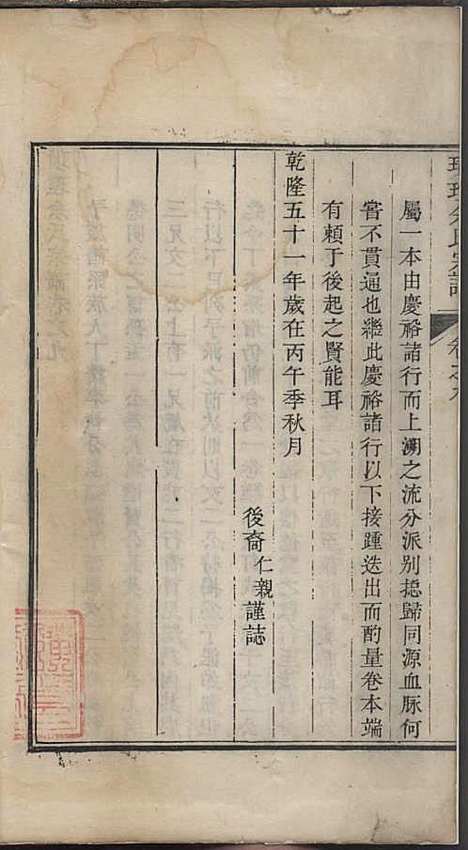 氏宗譜
卷之九
屬一本由慶裕諸行而上溯之流分派別揔歸同源血脈何
嘗不貫通也繼此慶裕諸行以下接踵迭出而酌量卷本端
有頼于後起之賢能耳
乾隆五十一年歲在丙午季秋月
後裔仁親謹誌